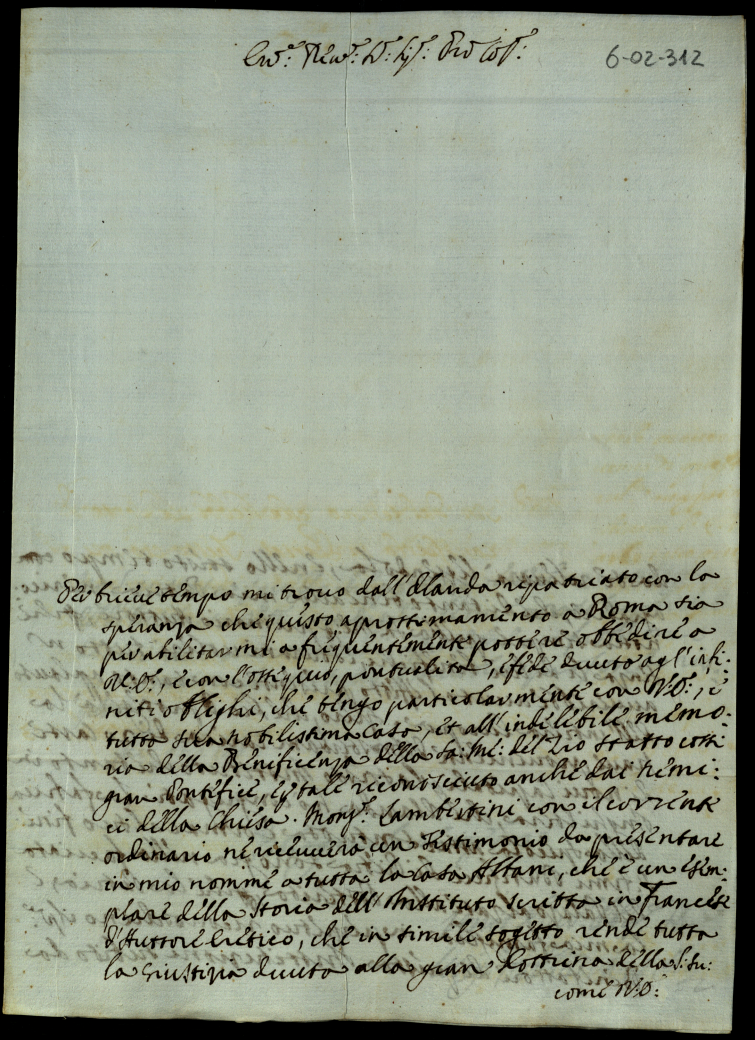 Em.o Rev.o S.r Sig.r Pro Col.o
6-02-312
Per brieve tempo mi trovo dall'Olanda ripatriato con la
speranza che questo aprossimamento a Roma sia
per abilitarmi a frequentemente possere obbedire a
V: E:, e con l'ossequio, pontualità, e fede dovuta agl'infi:
niti oblighi, che tengo particolarmente con V: E:, e
tutta sua nobilissima Casa, et all'indelebile memo:
ria della Beneficienza della Sa: Me: del Zio statto cossi
gran Pontefice, e p tale riconosciuto anche dai nemi:
ci della Chiesa. Mong.r Lambertini con il corrente
ordinario ne riceverà un Testimonio da presentare
in mio nomme a tutta la Casa Albani, che è un esem:
plare della Storia dell'Instituto scritta in Francese
d'Auttore Eretico, che in simile sogetto rende tutta
la Giustizia dovuta alla gran Dottrina della S: Su:
come V: E: